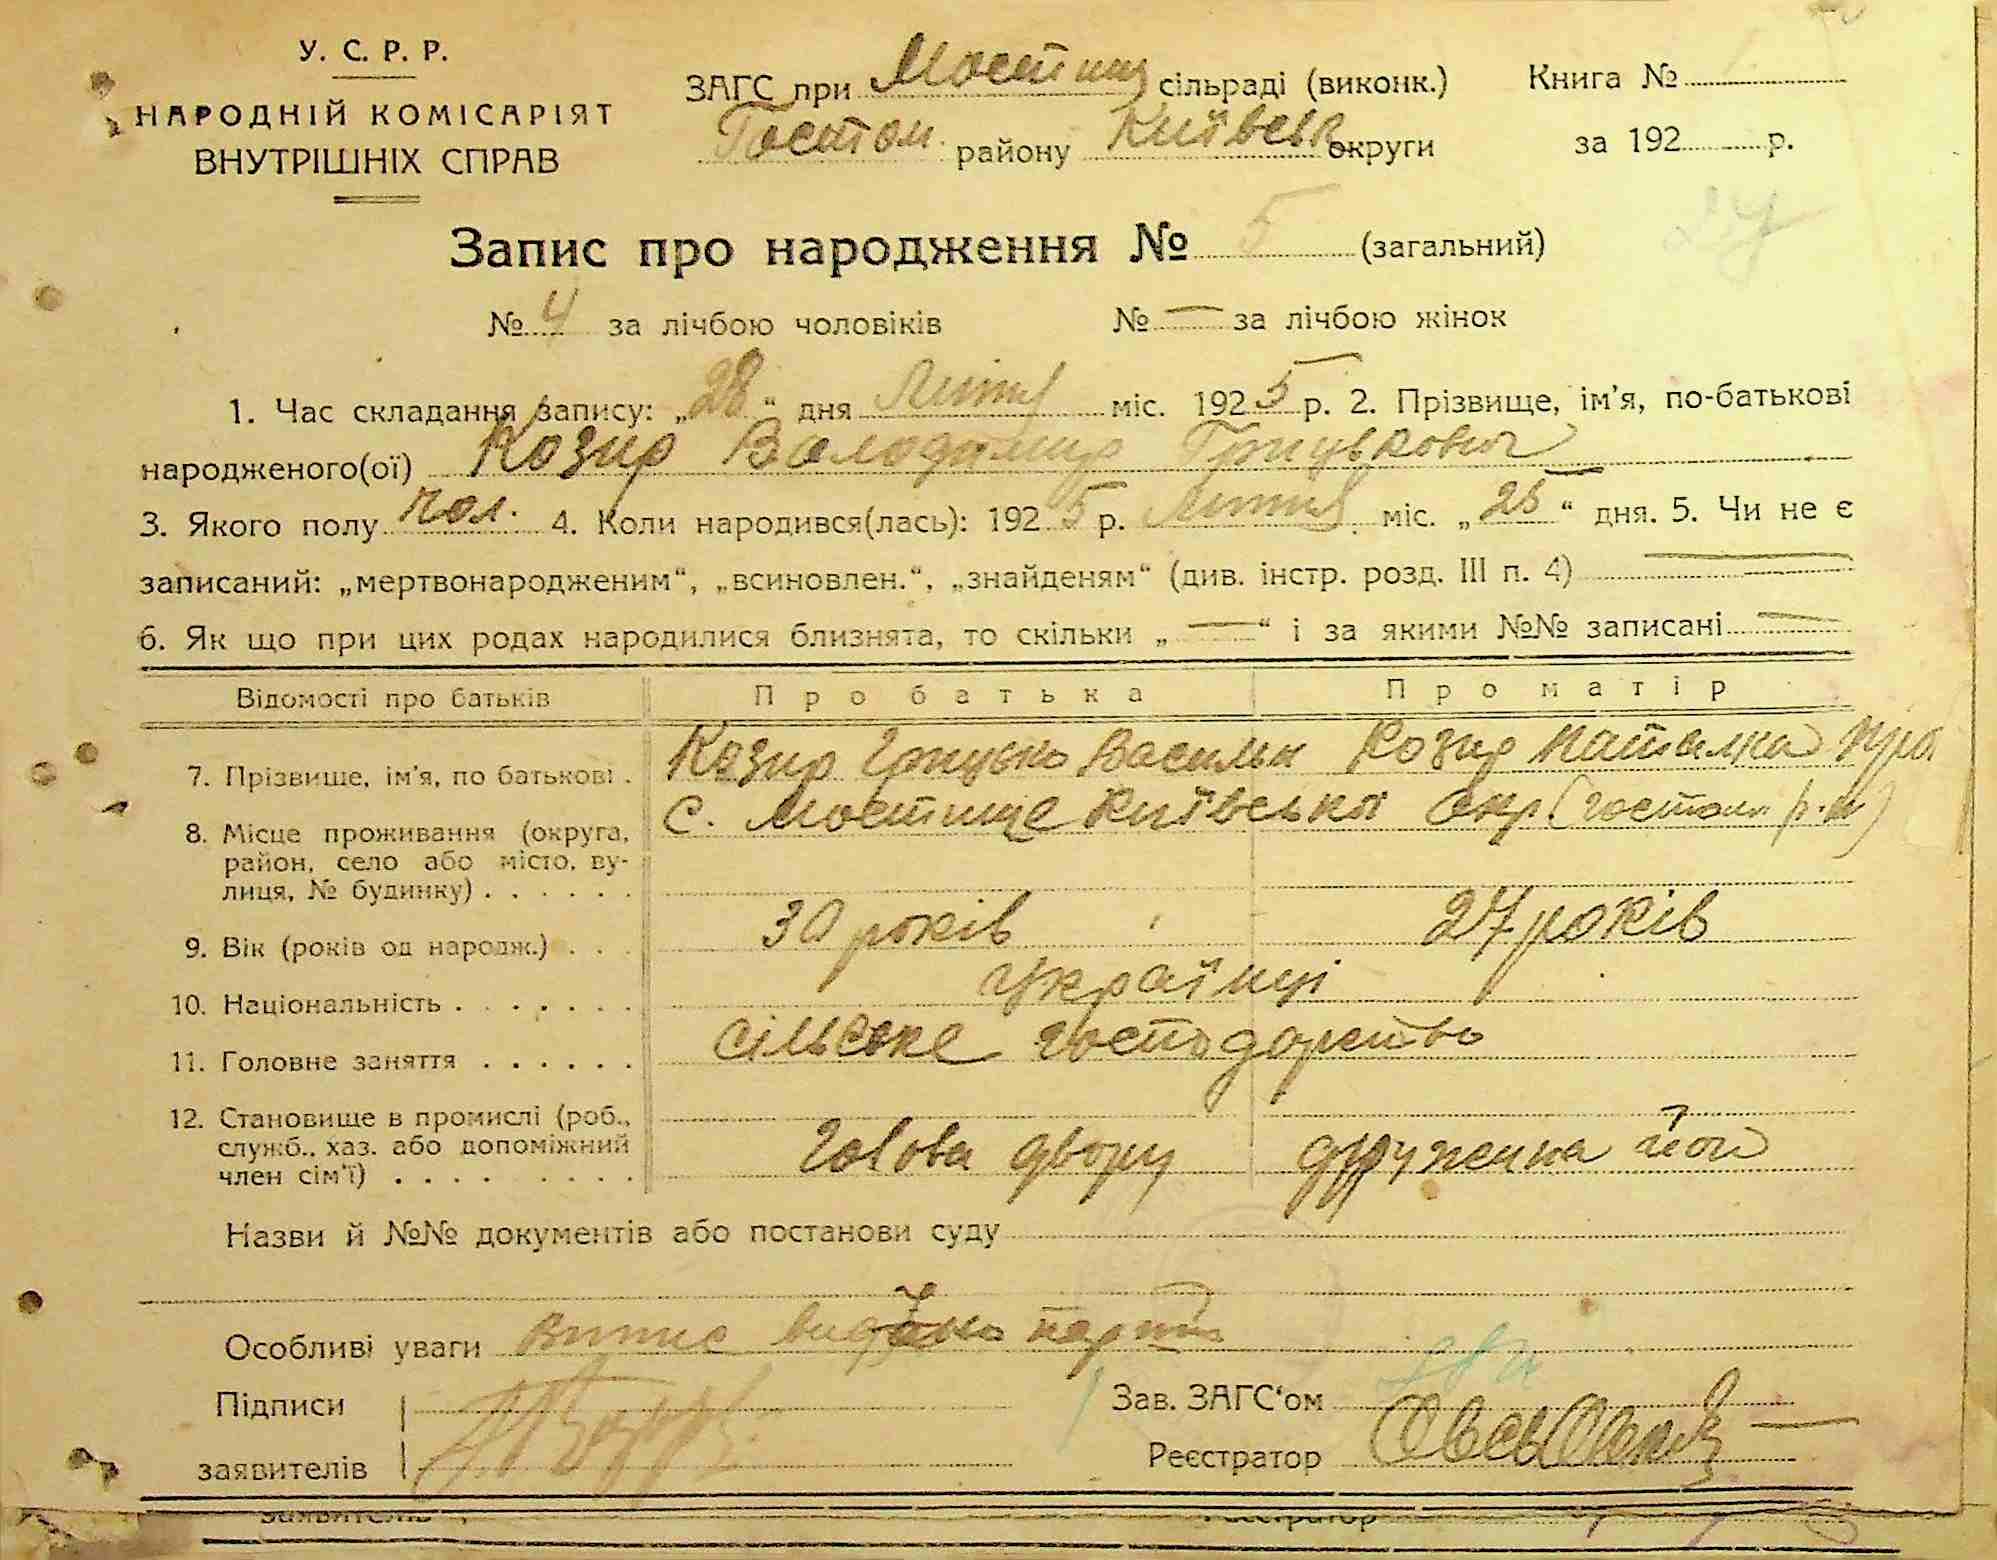 У. С. Р. Р.
НАРОДНІЙ КОМІСАРІЯТ
ВНУТРІШНІХ СПРАВ
ЗАГС при Мостищ сільраді (виконк.) Книга №
Гостом. району Київськ округи за 192 р.
Запис про народження № 5 (загальний)
№ 4 за лічбою чоловіків № — за лічбою жінок
1. Час складання запису: „28“ дня міс. 1925 р. 2. Прізвище, ім'я, по-батькові
народженого(ої) Козир Володимир Грицькович
3. Якого полу чол. 4. Коли народився(лась): 1925 р. міс. „25“ дня. 5. Чи не є
записаний: „мертвонародженим“, „всиновлен.“, „знайденям“ (див. інстр. розд. III п. 4) —
6. Як що при цих родах народилися близнята, то скільки „ — “ і за якими №№ записані —
Відомості про батьків Про батька Про матір
7. Прізвище, ім'я, по батькові . Козир Грицько Васильк Козир Наталка
8. Місце проживання (округа, с. Мостище Київської окр. (Гостом. р-н)
район, село або місто, ву-
лиця, № будинку) . . . . . .
9. Вік (років од народж.) . . . 30 років 27 років
10. Національність . . . . . . . українці
11. Головне заняття . . . . . . сільське господарство
12. Становище в промислі (роб.,
служб., хаз. або допоміжний Голова двору дружина його
член сім'ї) . . . . . . . .
Назви й №№ документів або постанови суду
Особливі уваги Випис видано
Підписи Зав. ЗАГС‘ом
заявителів Реєстратор
заявителів Реєстратор